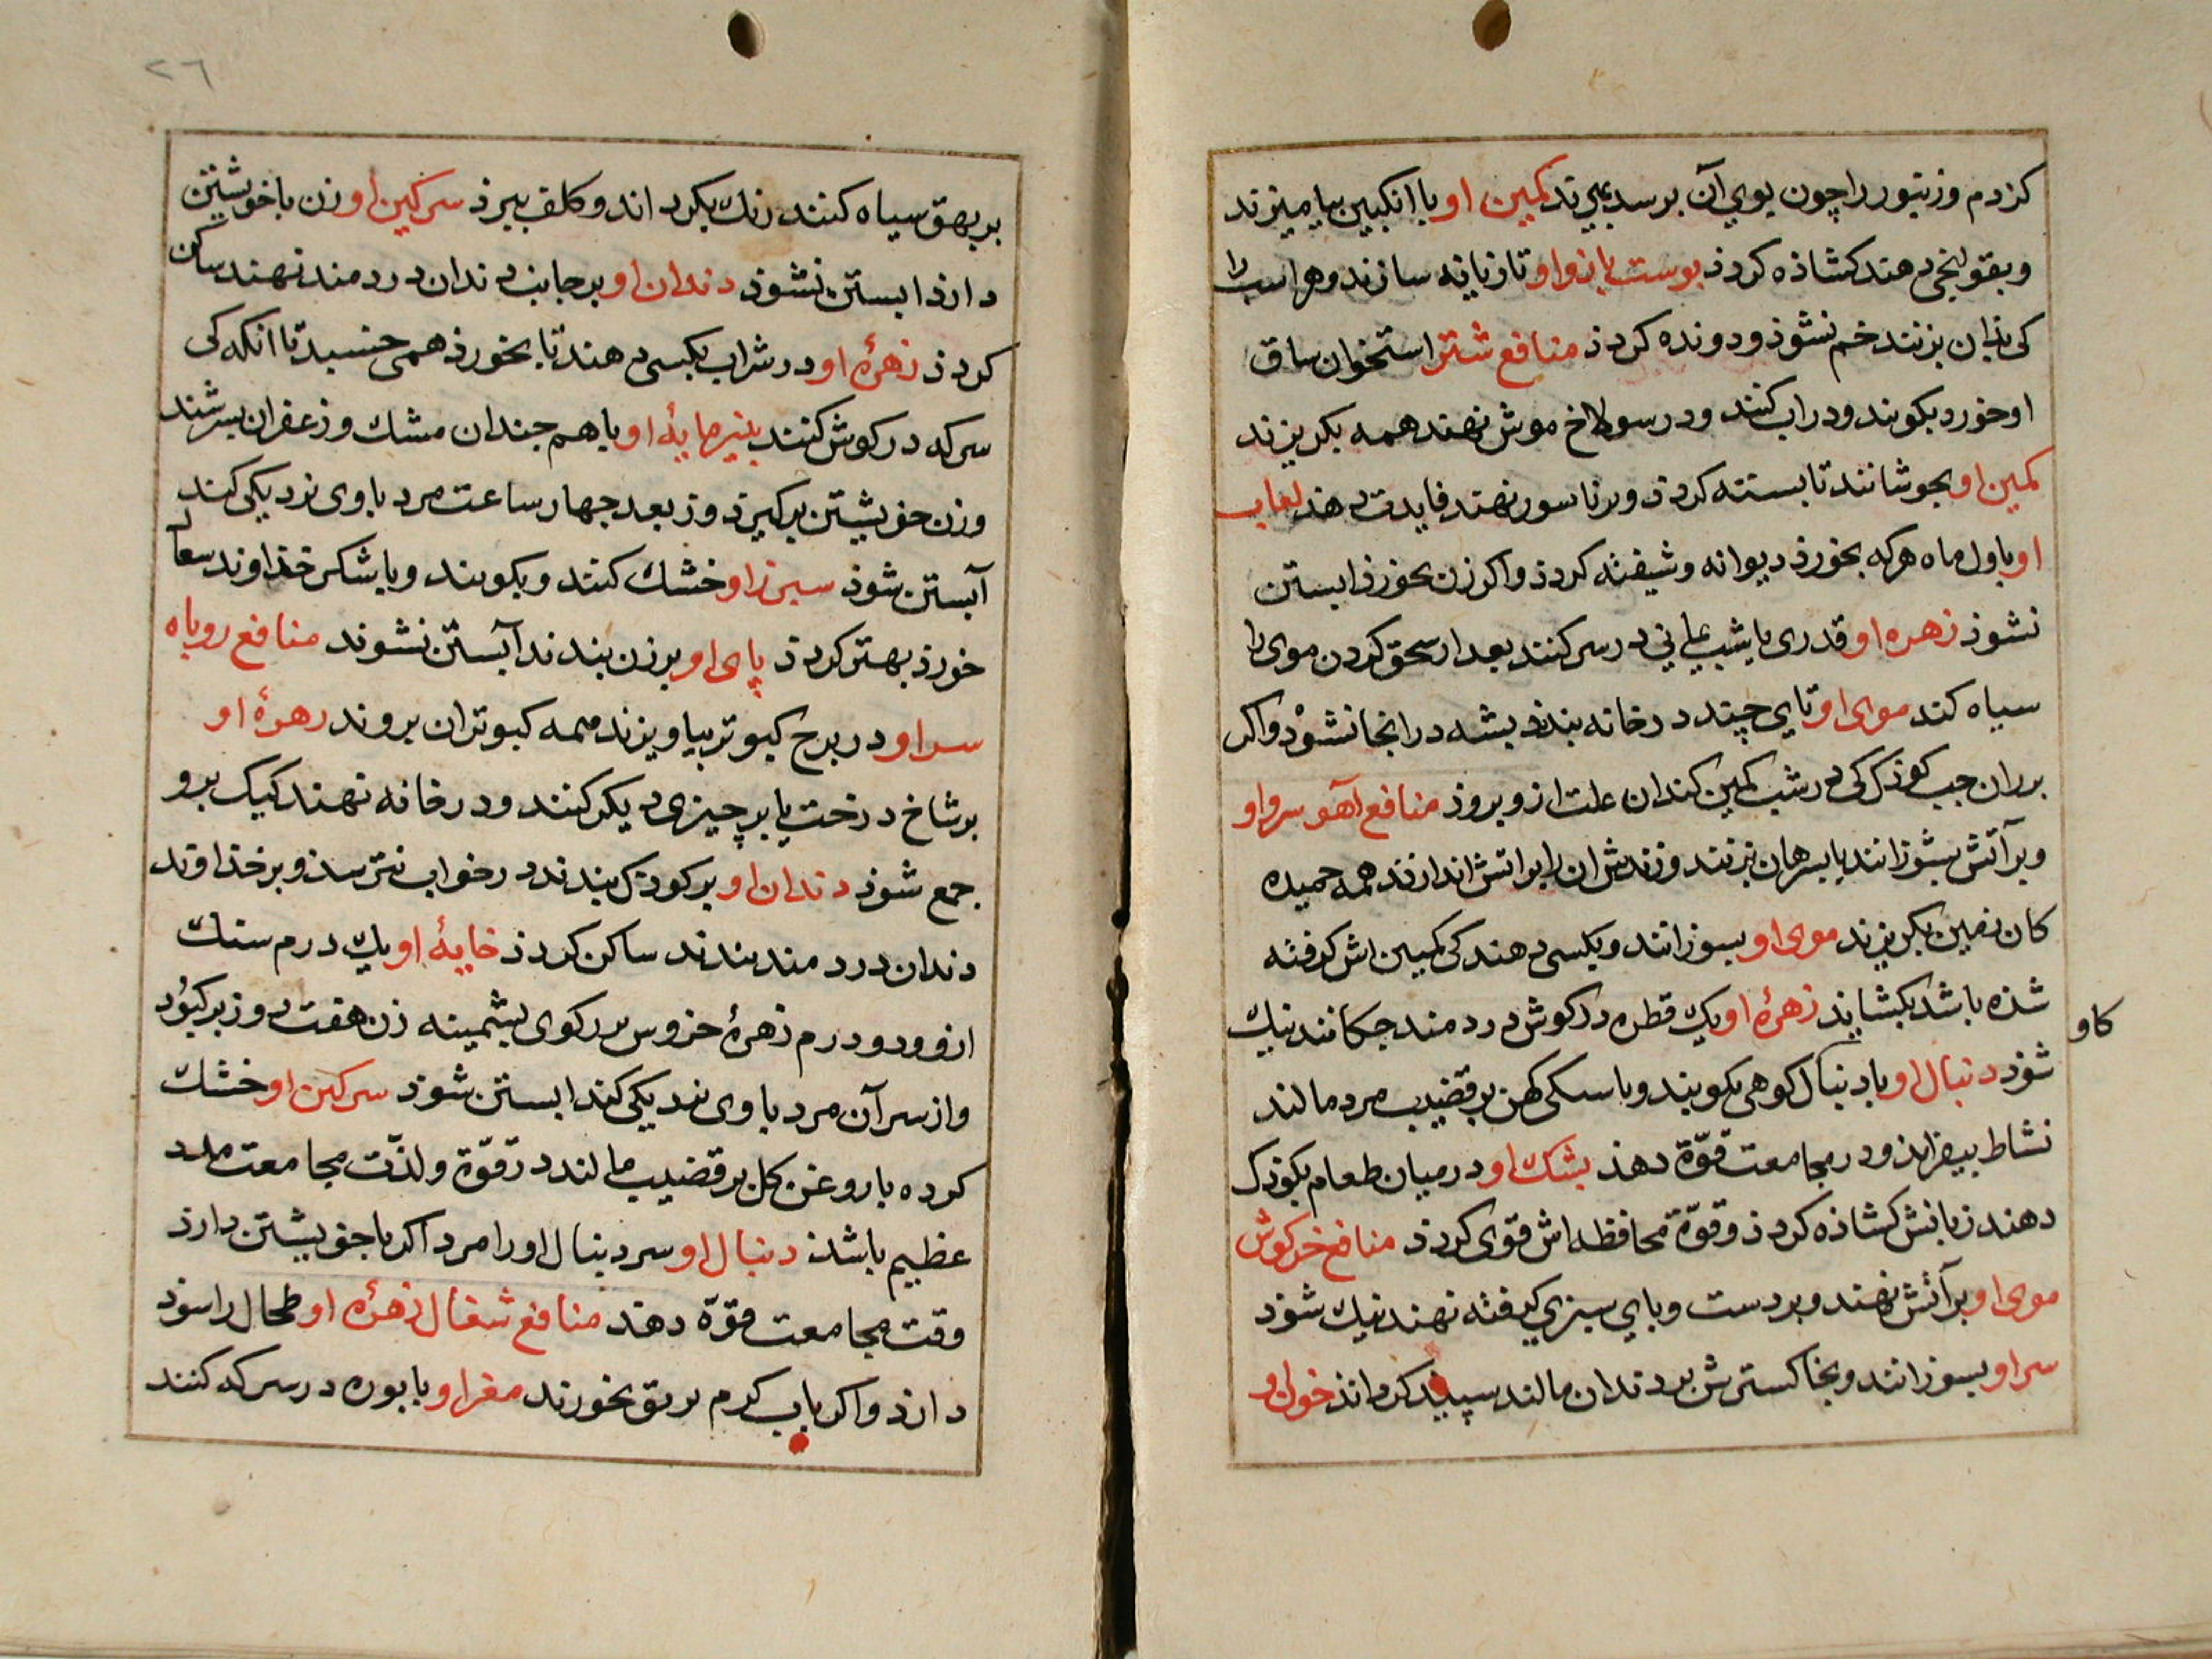 کزدم و زنبور را چون بوی آن برسد بمیرند کمین او با انکبین بیامیزند
و بقولنجی دهند کشاذه کردذ بوست بازو او تازیانه سازند و هر اسب را
کی بذان بزنند خم نشوذ و دونده کردذ منافع شتر استخوان ساق
او خورد بکوبند و در اب کنند و در سولاخ موش نهند همه بکریزند
کمین او بجوشانند تا بسته کردذ و بر ناسور نهند فایدت دهد لعاب
او باول ماه هرکه بخورذ دیوانه و شیفته کردذ و اکر زن بخورذ ابستن
نشوذ زهره او قدری با شب یمانی در سر کنند بعد از سحق کردن موی را
سیاه کند موی او تای چند در خانه بندند بشه در انجا نشوذ و اکر
بر ران جب کوذک کی در شب کمین کند ان علت ازو بروذ منافع آهو سرو او
و بر آتش بسوزانند یا بسرهان بزنند و زندش ان را بر اتش اندازند همه حمیده
کان زمین بکریزند موی او بسوزانند و بکسی دهند کی کمیین اش کرفته
شذه باشد بکشایذ زهرۀ او یک قطره در کوش دردمند جکانند نیک
کاو
شوذ دنبال او با دنبال کوهی بکوبند و با سکی کهن بر قضیب مرد مالند
نشاط بیفزاید و در مجامعت قوّة دهذ بشک او در میان طعام بکوذک
دهند زبانش کشاذه کردذ و قوّة محافظه اش قوی کردذ منافع خرکوش
موی او بر آتش نهند و بر دست و بای سبزی کرفته نهند نیک شوذ
سر او بسوزانند و بخاکسترش بر دندان مالند سپیذ کرداند خون او
٢٦
بر بهق سیاه کنند رنک بکرداند و کلف ببرذ سرکین او زن با خویشتن
دارذ ابستن نشوذ دندان او بر جانب دندان دردمند نهند ساکن
کردذ زهرۀ او در شراب بکسی دهند تا بخورذ همی خسبد تا انکه کی
سرکه در کوش کنند بنیر مایۀ او با هم جندان مشک و زعفران بسرشند
و زن خویشتن برکیرد و ز بعد جهار ساعت مرد با وی نزدیکی کند
آبستن شوذ سبرز او خشک کنند و بکوبند و با شکر خذاوند سعال
خورذ بهتر کردذ پای او بر زن بندند آبستن نشوند منافع روباه
سر او در برج کبوتر بیاویزند همه کبوتران بروند زهرۀ او
بر شاخ درخت یا بر چیزی دیکر کنند و در خانه نهند کیک برو
جمع شوذ دندان او بر کوذک بندند در خواب نترسذ و بر خذاوند
دندان دردمند بندند ساکن کردذ خایۀ او یک درم سنک
ازو و دو درم زهرۀ خروس بر رکوی بشمینه زن هفت روز برکیرد
و از سر آن مرد با وی نزدیکی کند ابستن شوذ سرکین او خشک
کرده با روغن کل بر قضیب مالند در قوّة و لذّت مجامعت مدد
عظیم باشذ دنبال او سر دنبال او را مرد اکر با خویشتن دارذ
وقت مجامعت قوّة دهد منافع شغال زهرۀ او طحال را سوذ
دارذ و اکر باب کرم بریق بخورند مغز او با بوره در سرکه کنند